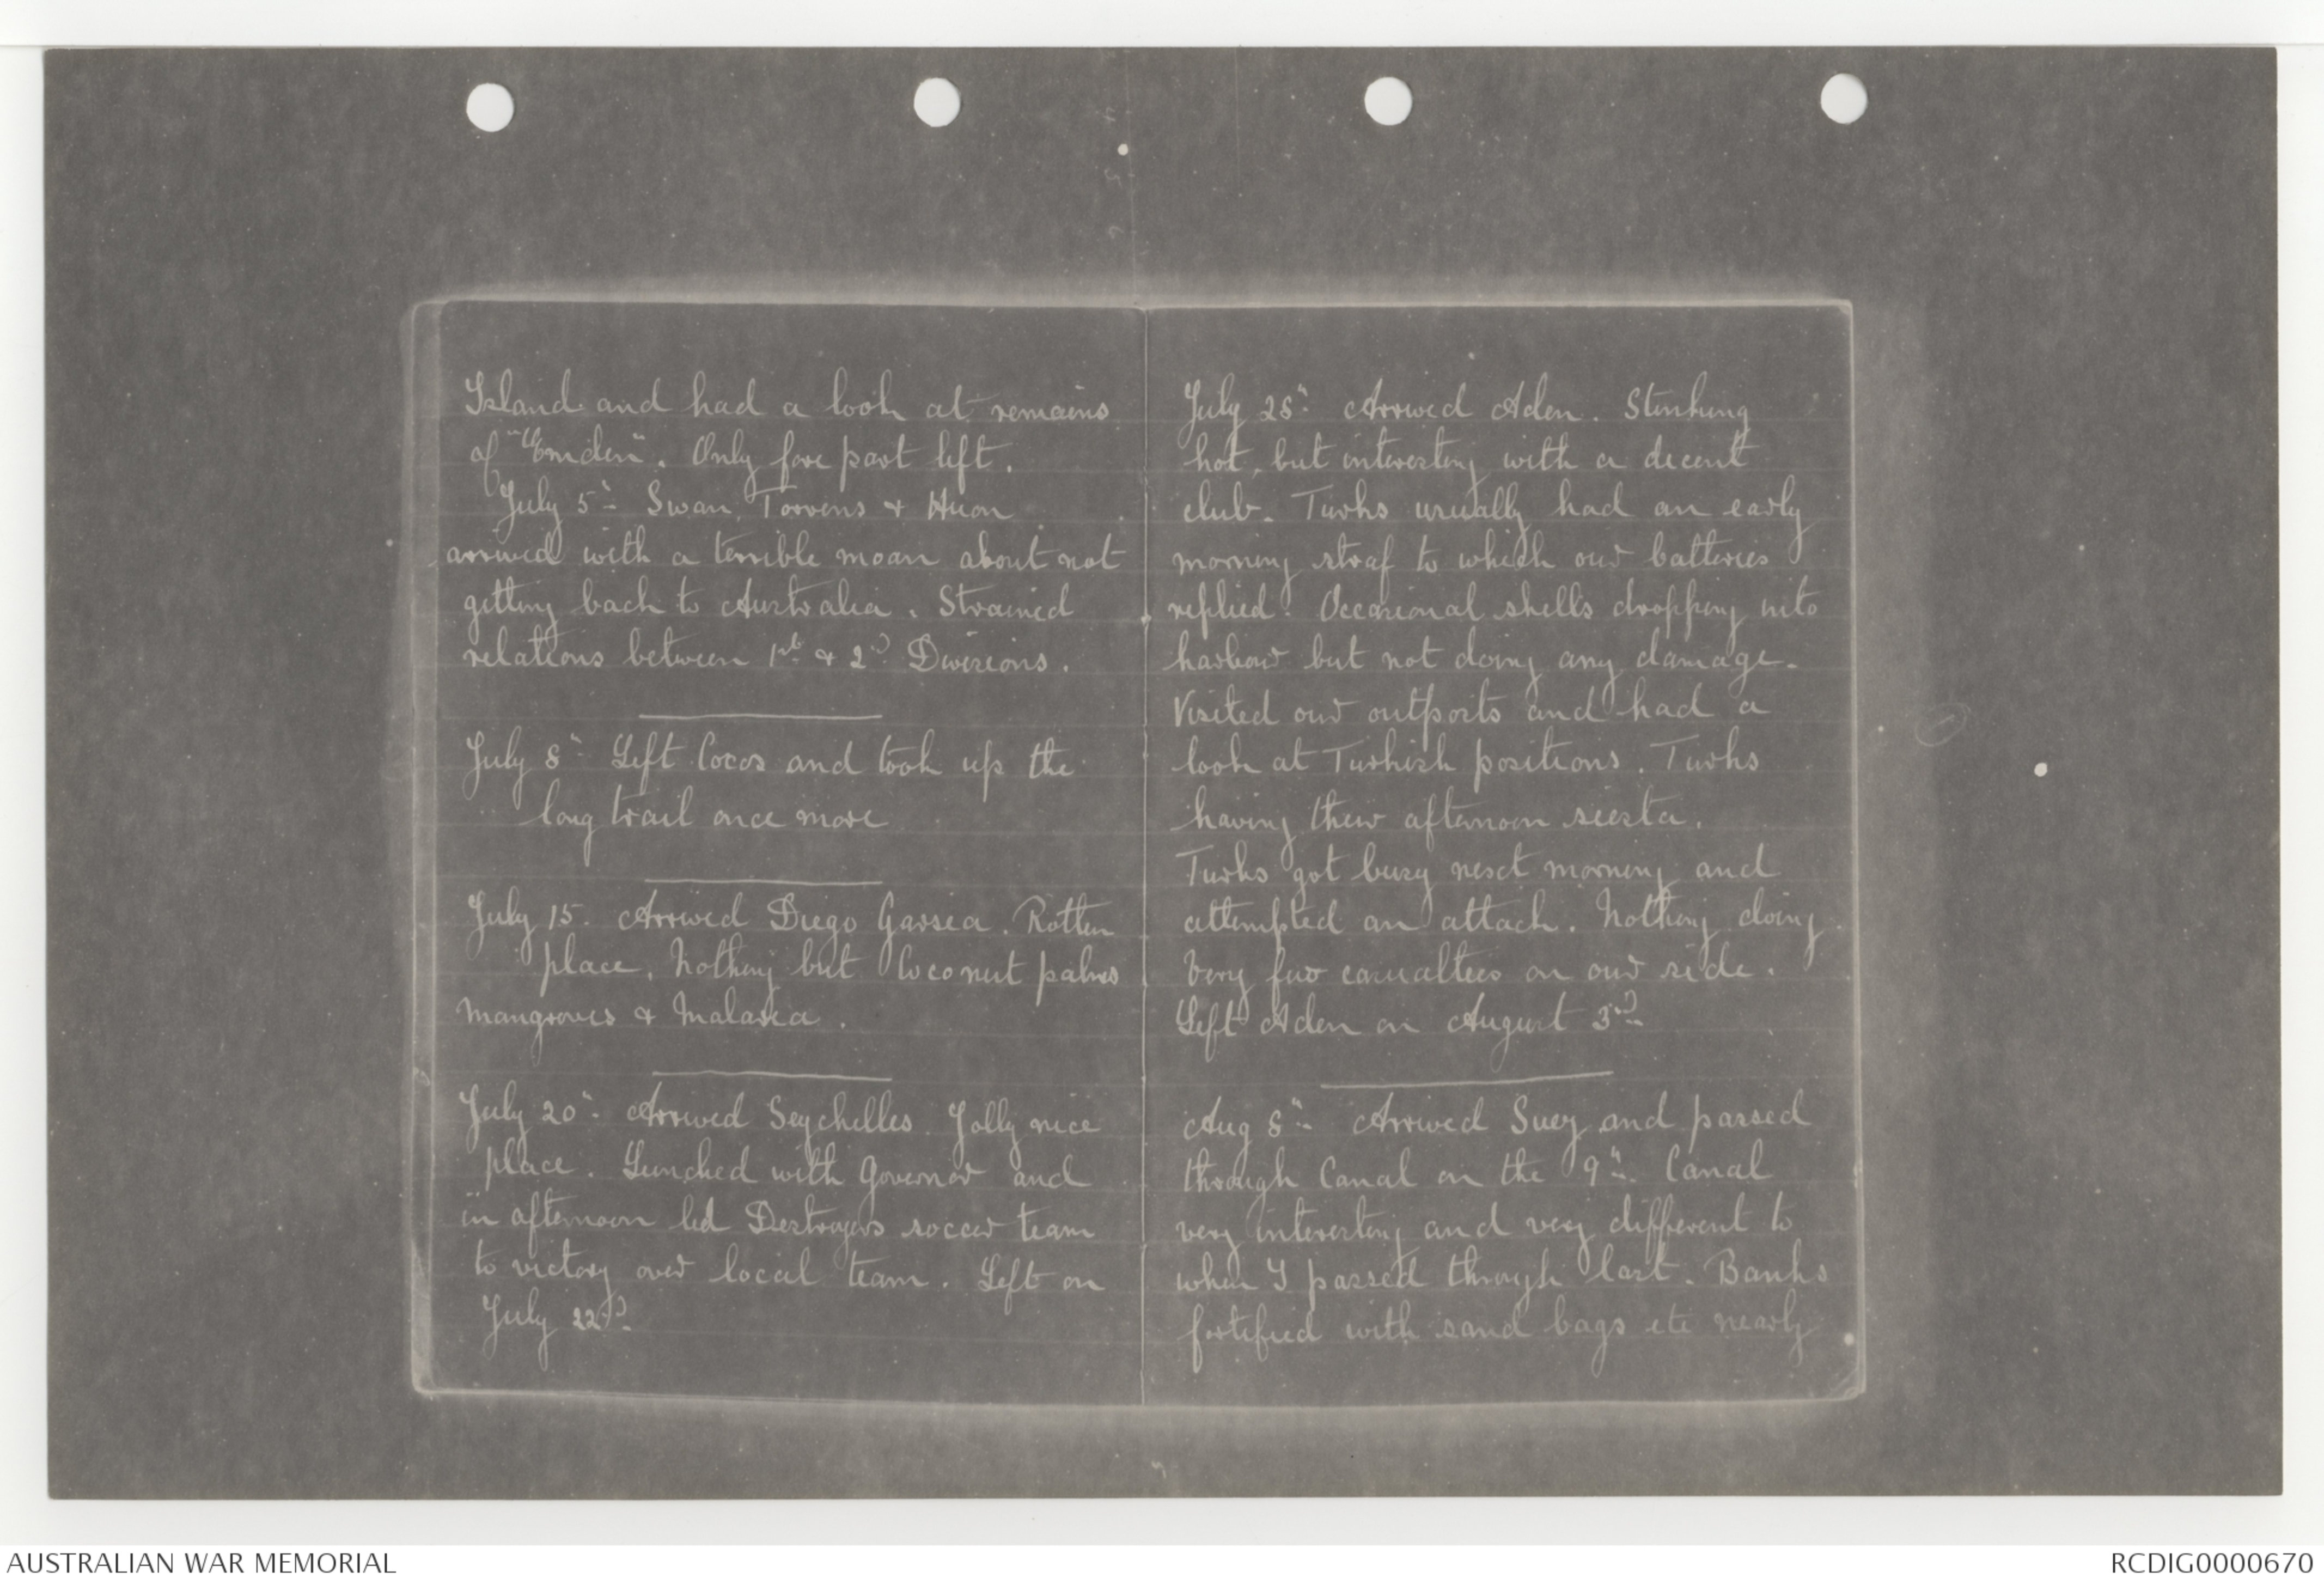 Island and had a look at remains
of "Emden". Only fore part left.
July 5th Swan, Torrens & Huon
arrived with a terrible moan about not
getting back to Australia. Strained
relations between 1st & 2nd Divisions.
July 8th Left Cocos and took up the
long trail once more
July 15. Arrived Diego Garsia. Rotten
place, Nothing but Coconut palms
mangroves & Malaria.
July 20th. Arrived Seychelles. Jolly nice
place. Lunched with Governor and
in afternoon led Destroyers soccer team
to victory over local team. Left on
July 22nd.
July 28th Arrived Aden. Stinking
hot, but interesting with a decent
club. Turks usually had an early
morning straf to which our batteries
replied. Occasional shells dropping into
harbour but not doing any damage.
Visited our outposts and had a
look at Turkish positions. Turks
having their afternoon siesta.
Turks got busy next morning and
attempted an attack. Nothing doing.
Very few casualties on our side.
Left Aden on August 3rd
Aug 8th Arrived Suez and passed
through Canal on the 9th. Canal
very interesting and very different to
when I passed through last. Banks
fortified with sand bags etc nearly
AUSTRALIAN WAR MEMORIAL
RCDIG0000670